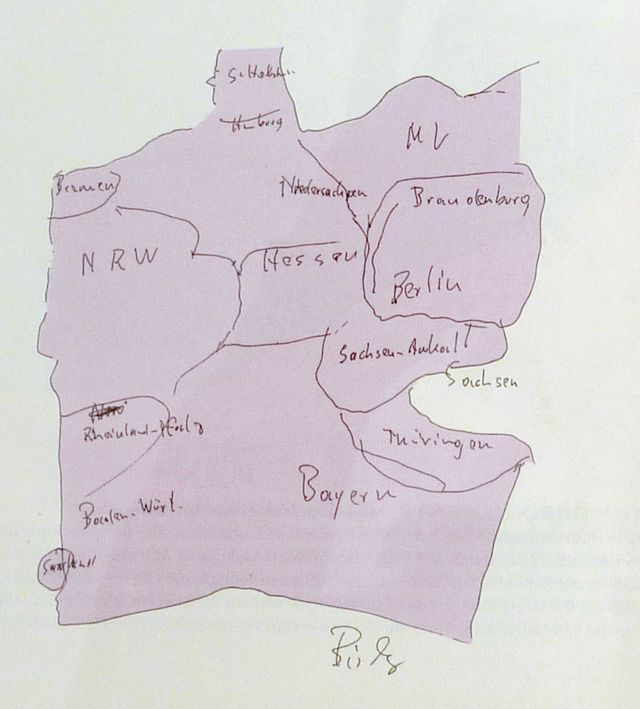 Hamburg
MV
Niedersachsen
Bremen
Brandenburg
NRW
Hessen
Berlin
Sachsen-Anhalt
Sachsen
Rheinland-Pfalz
Thüringen
Bayern
Baden-Würt.
Saarland